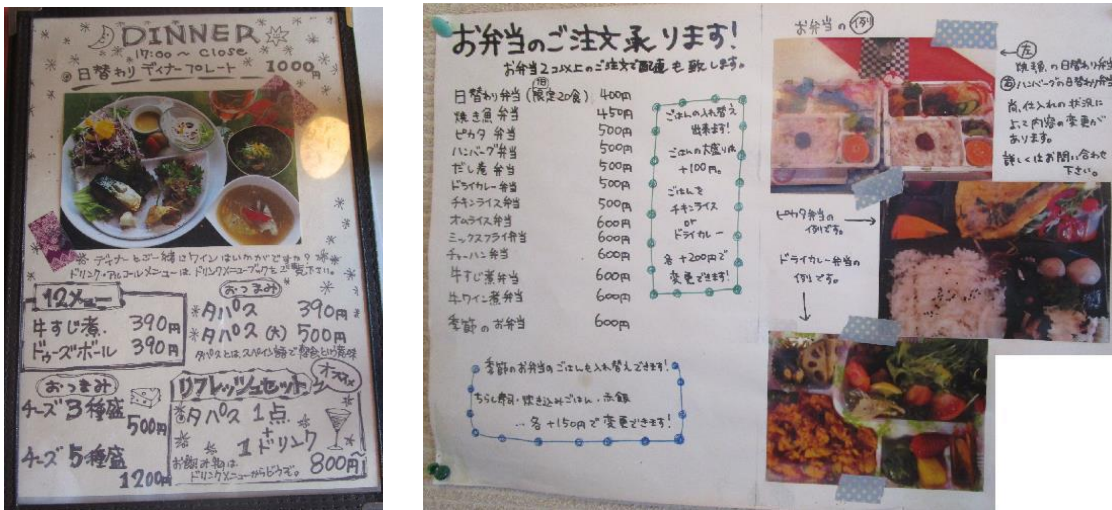 DINNER
17:00~ close
日替わり ディナープレート 1000円
ディナーとご一緒にワインはいかがですか?
ドリンク・アルコールメニューは ドリンクメニューブックをご覧下さい。
12メニュー
牛すじ煮. 390円
ドゥーズボール 390円
おつまみ
タパス 390円
タパス(大) 500円
タパスとは、スペイン語で
おつまみ
チーズ3種盛
500円
チーズ5種盛
1200円
リフレッシュセット
オススメ
タパス 1点
+
1ドリンク
お飲み物は
ドリンクメニューからどうぞ。
800円~
お弁当のご注文承ります!
お弁当2コ以上のご注文で配達も致します。
日替わり弁当(限定20食) 400円
焼き魚弁当 450円
ピカタ 弁当 500円
ハンバーグ弁当 500円
だし煮 弁当 500円
ドライカレー弁当 500円
チキンライス弁当 500円
オムライス弁当 600円
ミックスフライ弁当 600円
チャーハン弁当 600円
牛すじ煮弁当 600円
牛ワイン煮弁当 600円
季節のお弁当 600円
ごはんの入れ替え
出来ます!
ごはんの大盛りは
+100円。
ごはんを
チキンライス
or
ドライカレー
各+200円で
変更できます!
季節のお弁当のごはんも入れ替えできます!
ちらし寿司・炊き込みごはん・赤飯
... 各+150円で変更できます!
お弁当の 例
← 左
の日替わり弁当
右 ハンバーグの日替わり弁当
尚、仕入れの状況に
よって内容の変更が
あります。
詳しくはお問い合わせ
下さい。
ピカタ弁当の
例です。
ドライカレー弁当の
例です。